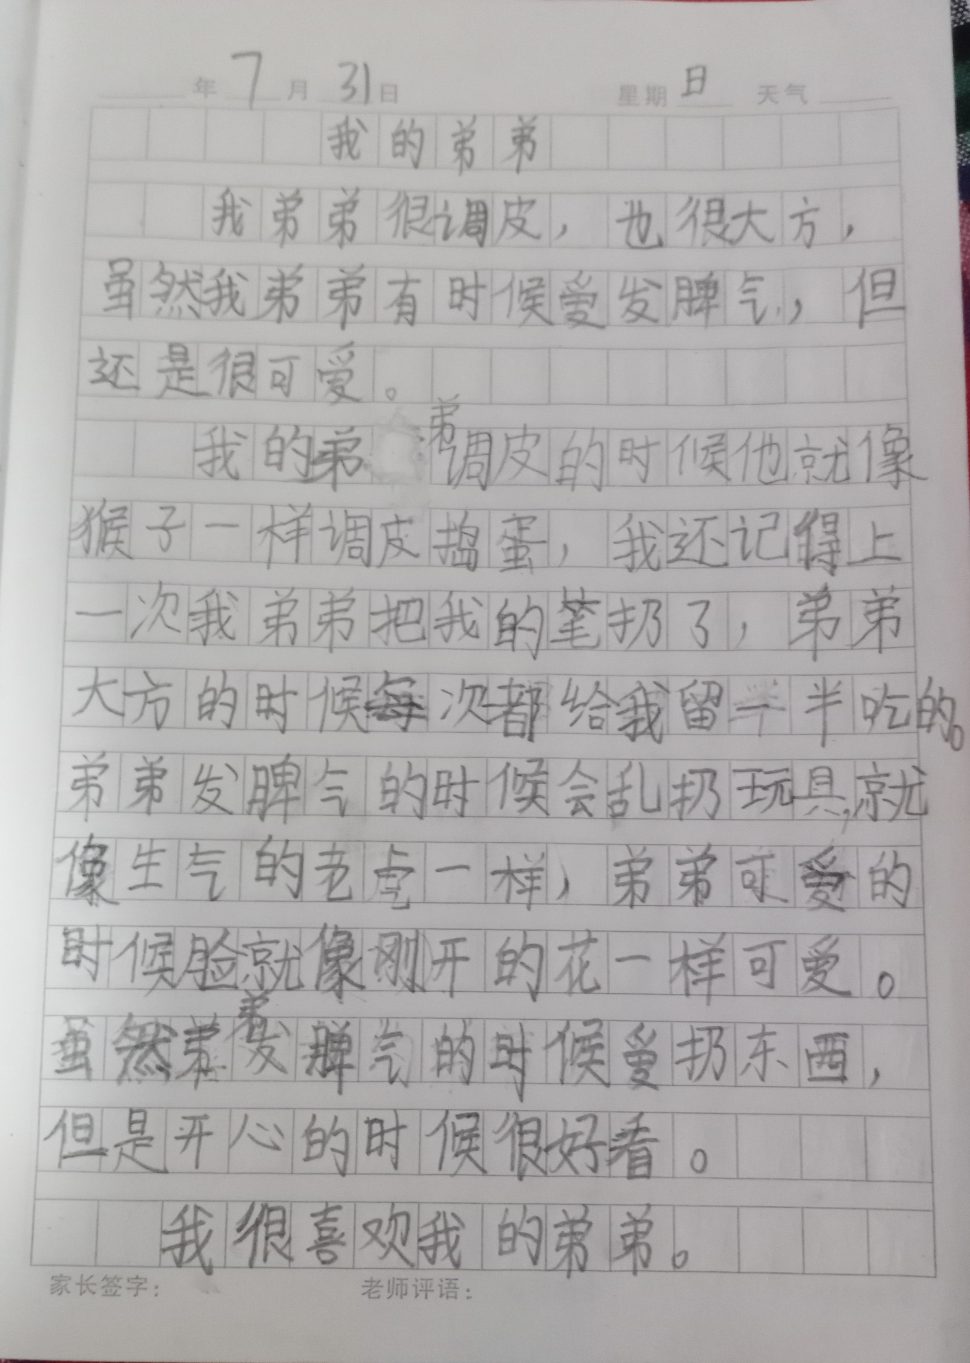 年 7 月 31 日 星期 日 天气
我的弟弟
我弟弟很调皮，也很大方，
虽然我弟弟有时候爱发脾气，但
还是很可爱。
我的弟弟调皮的时候他就像
猴子一样调皮捣蛋，我还记得上
一次我弟弟把我的笔扔了，弟弟
大方的时候每次都给我留一半吃的。
弟弟发脾气的时候会乱扔玩具，就
像生气的老虎一样，弟弟可爱的
时候脸就像刚开的花一样可爱。
虽然弟弟发脾气的时候爱扔东西，
但是开心的时候很好看。
我很喜欢我的弟弟。
家长签字： 老师评语：